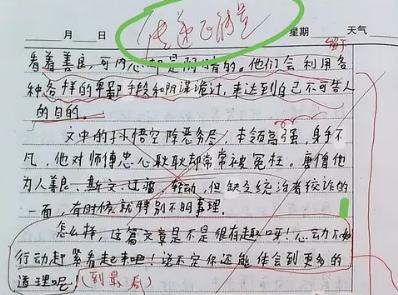 月 日 传递正能量 星期 天气
看着善良,可内心却是阴暗的。他们会利用各
种各样的卑鄙手段和阴谋诡计,来达到自己不可告人
的目的。
文中的孙悟空除恶务尽,本领高强,身手不
凡,他对师傅忠心耿耿却常常被冤枉。唐僧他
为人善良、斯文过 ,但缺乏统治者狡诈的
一面,有时候就特别不明事理。
怎么样,这篇文章是不是很有趣呀!心动不如
行动赶紧看起来吧!说不定你还能体会到更多的
道理呢!(到最后)